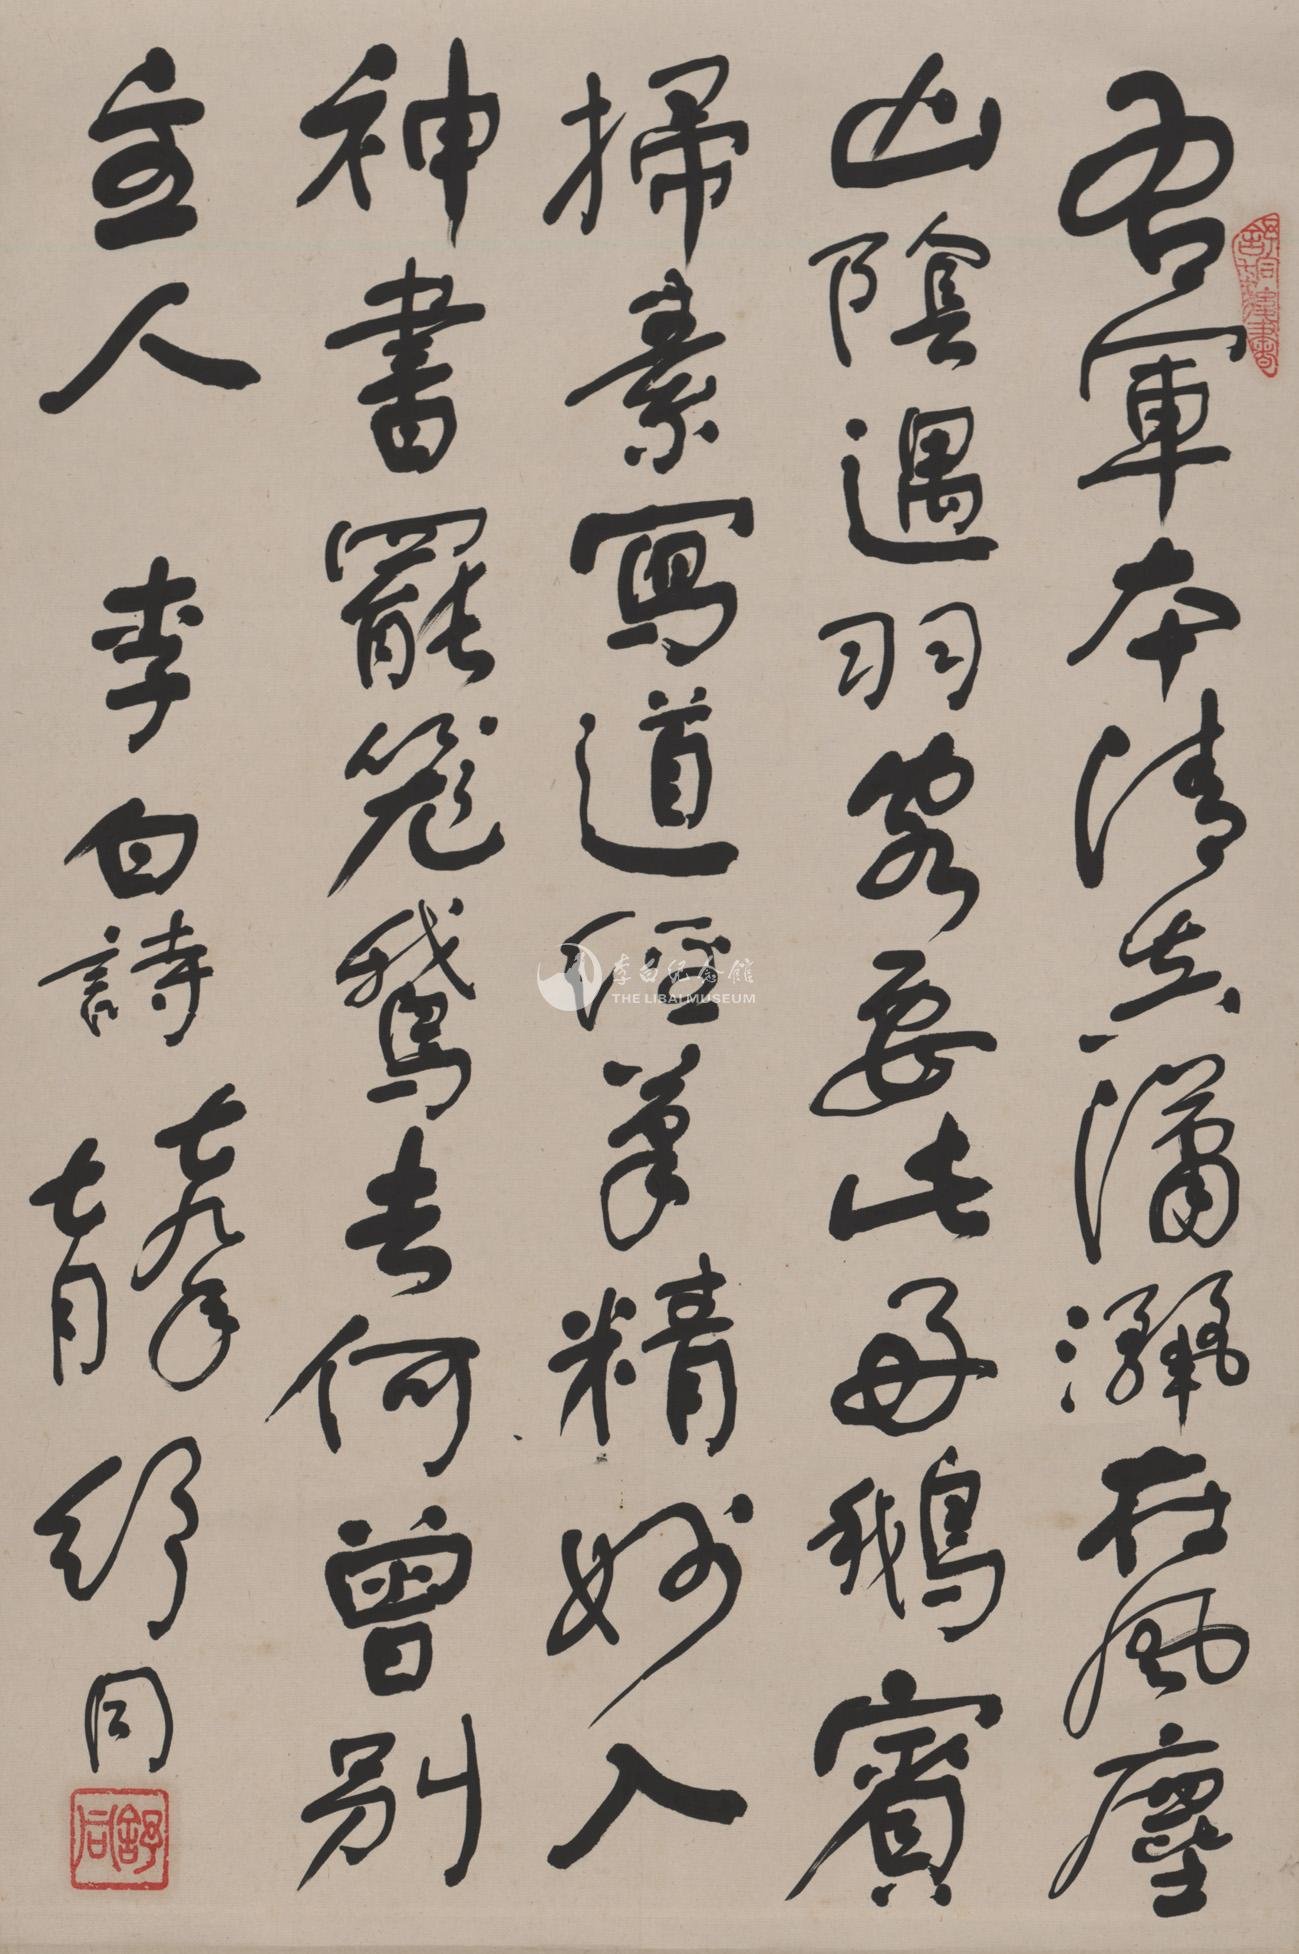 右軍本清真瀟灑在風塵
山陰遇羽客要此好鵝賓
掃素寫道經筆精妙入
神書罷籠鵞去何曾別
主人
李白詩
七九年
七月
舒同
舒同
李白纪念館
THE LIBAI MUSEUM